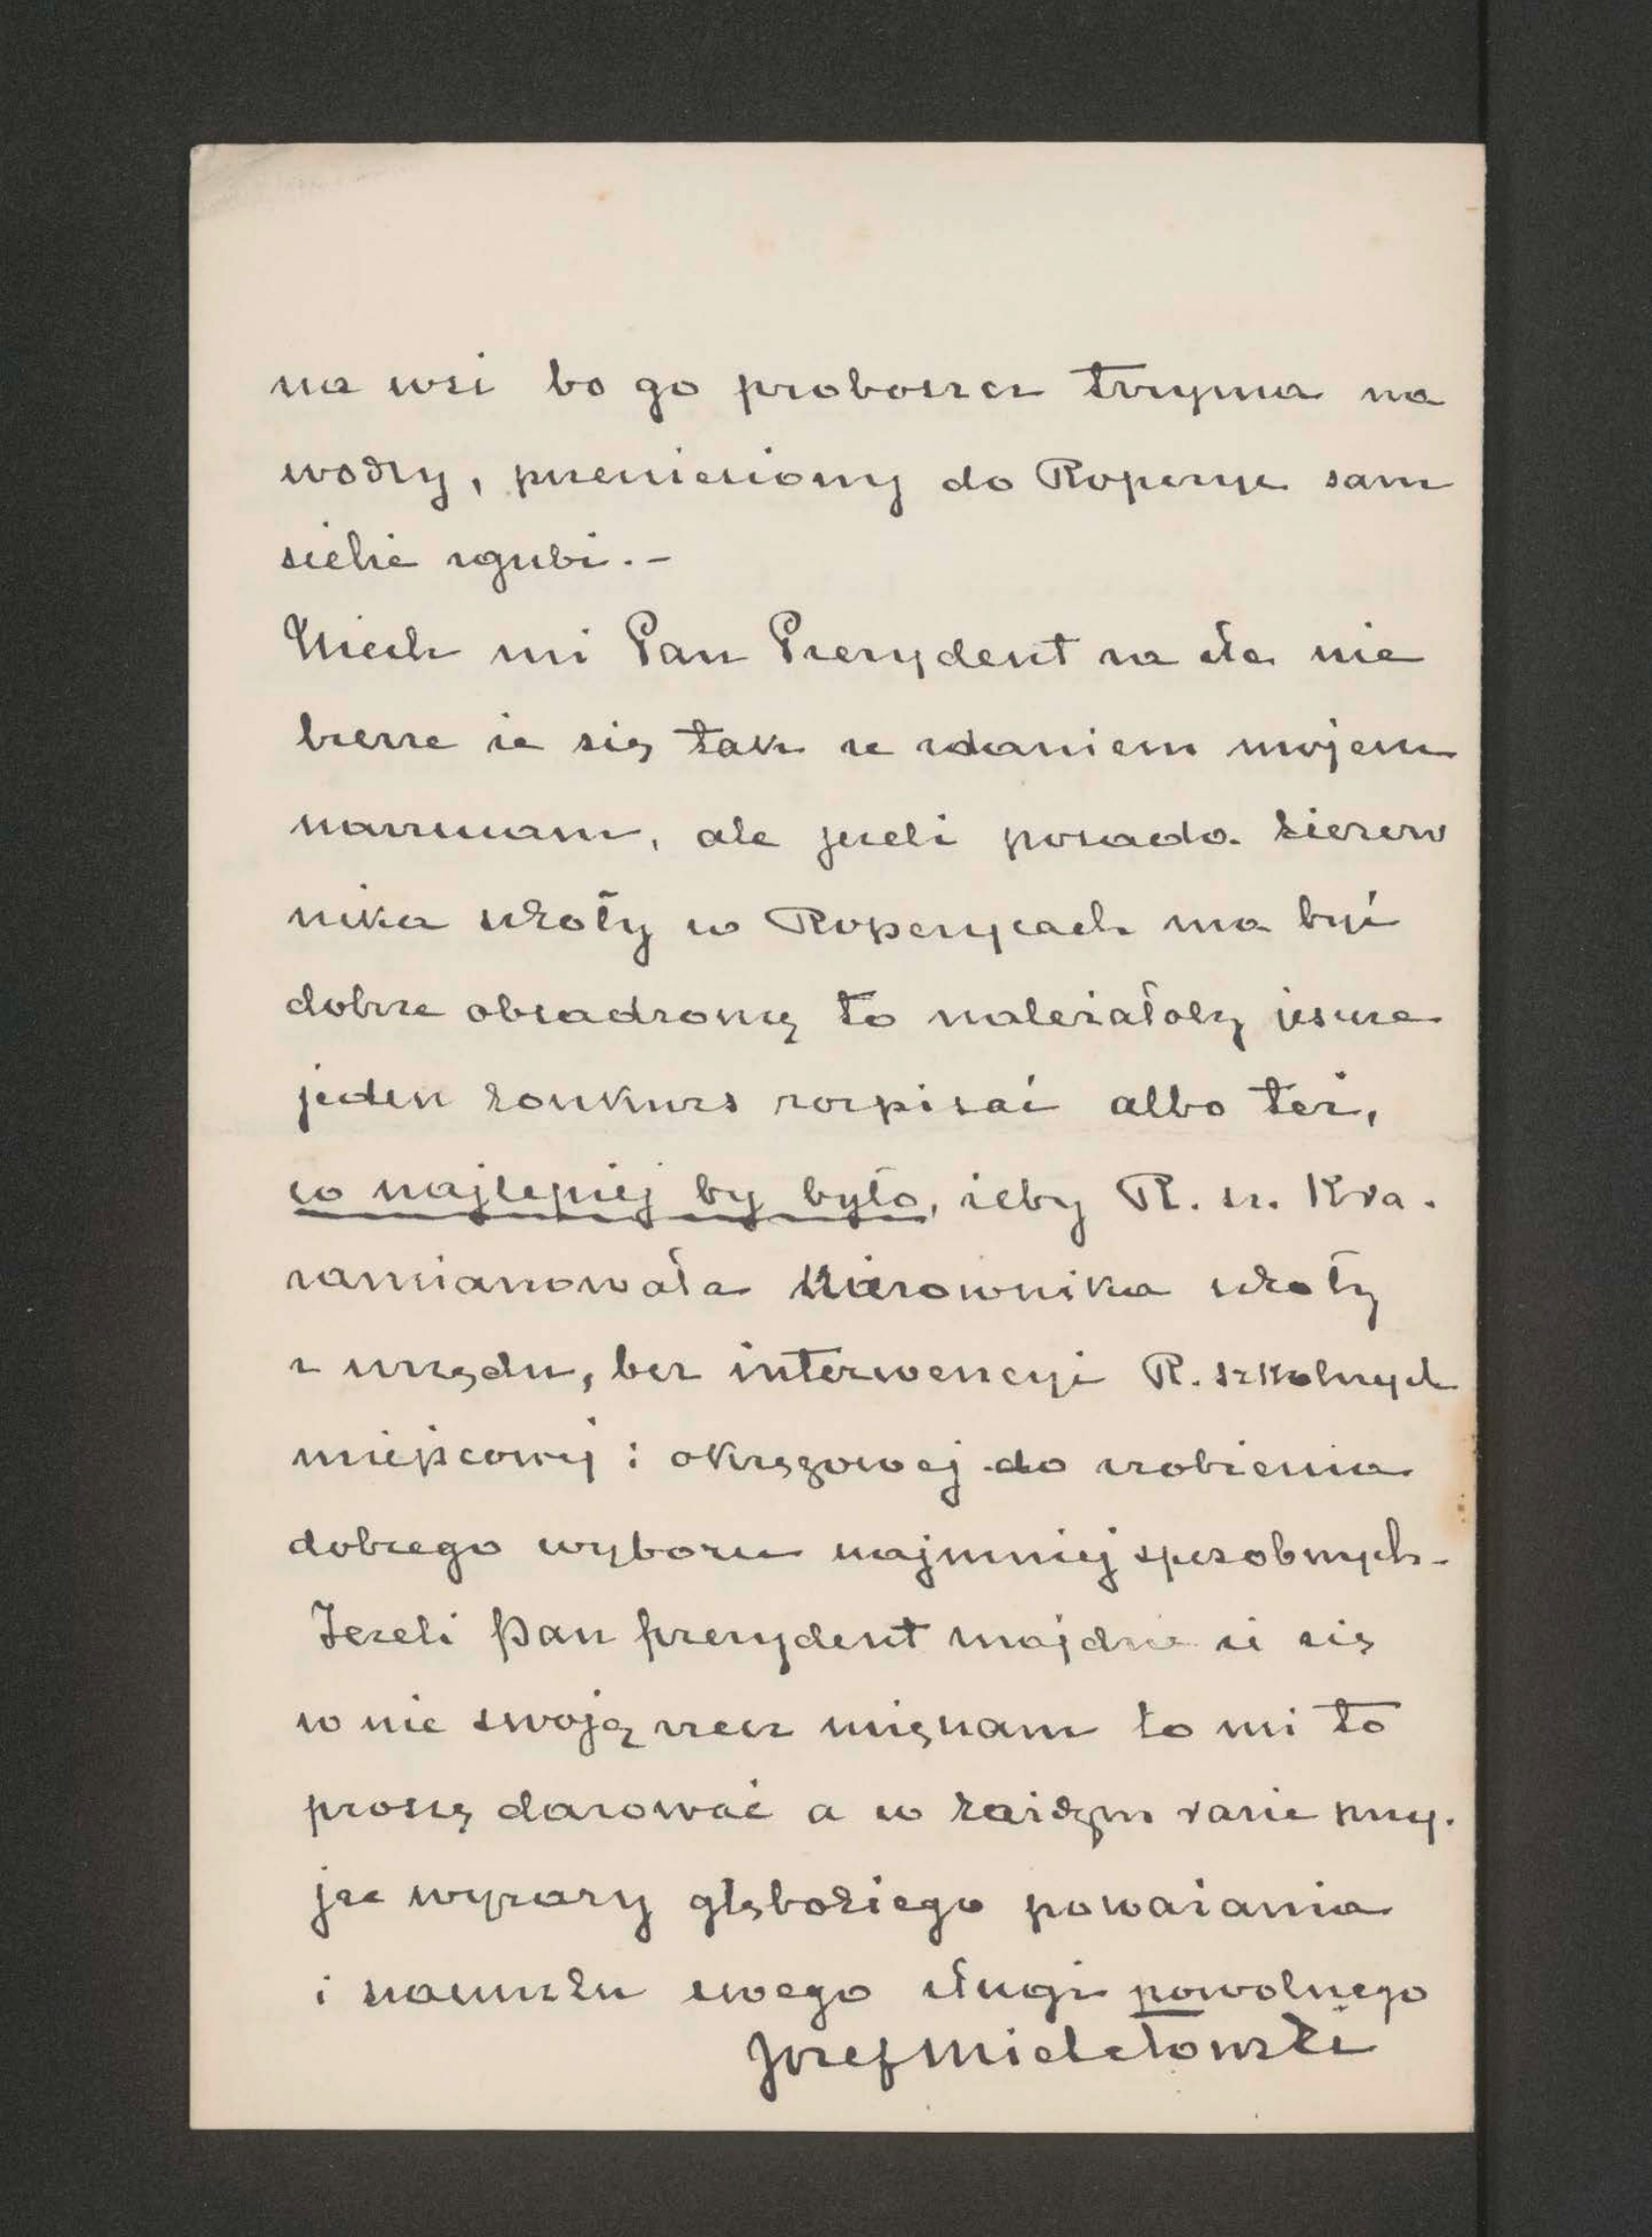 na wsi bo go proboszcz trzyma na
wodzy, przeniesiony do Ropczyc sam
siebie zgubi.-
Niech mi Pan Prezydent za złe nie
bierze że się tak ze zdaniem mojem
narzucam, ale jeżeli posada kierow
nika szkoły w Ropczycach ma być
dobrze obsadzoną to należałoby jeszcze
jeden konkurs rozpisać albo też,
co najlepiej by było, żeby R. sz. Kra.
zamianowała kierownika szkoły
z urzędu, bez interwencyi R. szkolnych
miejscowej i okręgowej do zrobienia
dobrego wyboru najmniej sposobnych-
Jeżeli Pan prezydent znajdzie że się
w nie swoją rzecz mięszam to mi to
proszę darować a w każdym razie przy.
jąć wyrazy głębokiego poważania
i szacunku swego sługi powolnego
Józef Michałowski